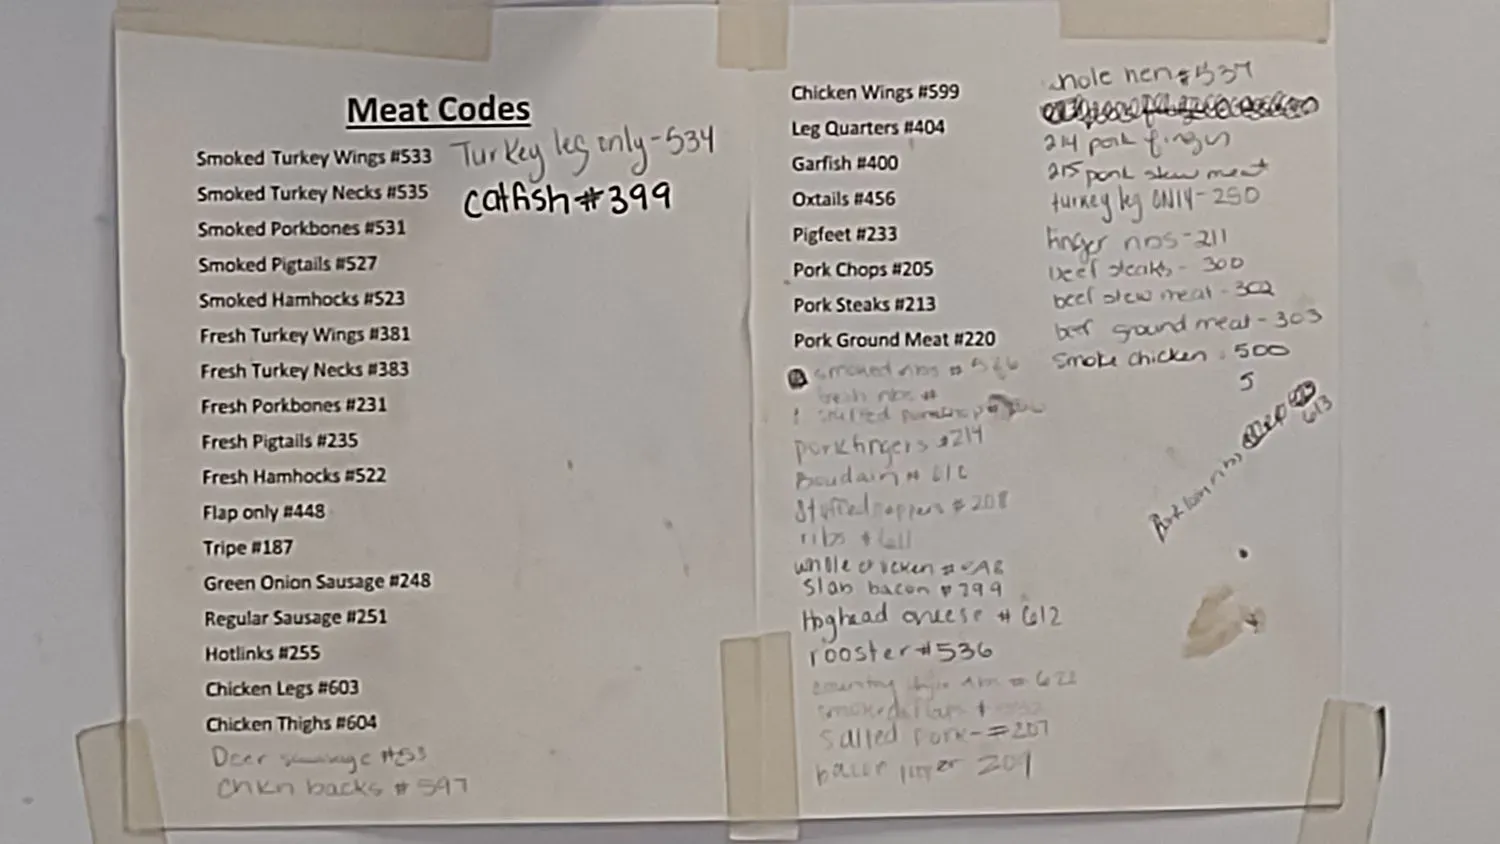 Meat Codes
Smoked Turkey Wings #533
Turkey leg only-534
Smoked Turkey Necks #535
catfish #399
Smoked Porkbones #531
Smoked Pigtails #527
Smoked Hamhocks #523
Fresh Turkey Wings #381
Fresh Turkey Necks #383
Fresh Porkbones #231
Fresh Pigtails #235
Fresh Hamhocks #522
Flap only #448
Tripe #187
Green Onion Sausage #248
Regular Sausage #251
Hotlinks #255
Chicken Legs #603
Chicken Thighs #604
Deer sausage #253
Chkn backs # 597
Chicken Wings #599
Leg Quarters #404
Garfish #400
Oxtails #456
Pigfeet #233
Pork Chops #205
Pork Steaks #213
Pork Ground Meat #220
smoked ribs #
fresh ribs #
stuffed porkchop #
porkfingers #214
Boudain #
Stuffed peppers # 208
ribs # 611
whole chicken #
Slab bacon # 799
Hoghead cheese # 612
rooster #536
country style ribs # 622
smoked
Salted Pork-#207
209
whole hen # 537
214 pork fingers
215 pork stew meat
turkey leg ONLY-250
finger ribs-211
beef steaks - 300
beef stew meat - 302
beef ground meat - 303
Smoke chicken - 500
5
Pork loin ribs
613